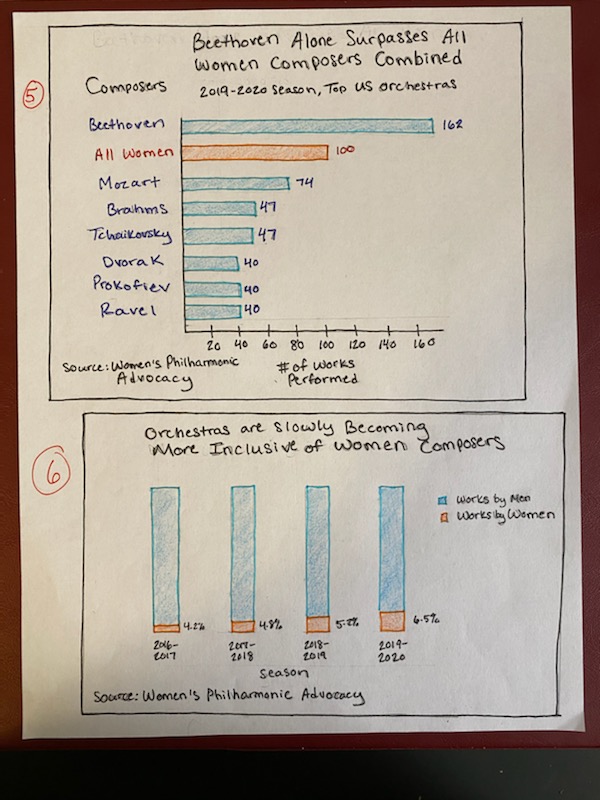 5
Beethoven Alone Surpasses All
Women Composers Combined
Composers
2019-2020 Season, Top US Orchestras
Beethoven 162
All Women 100
Mozart 74
Brahms 47
Tchaikovsky 47
Dvorak 40
Prokofiev 40
Ravel 40
20 40 60 80 100 120 140 160
Source: Women's Philharmonic
Advocacy
# of Works
Performed
6
Orchestras are Slowly Becoming
More Inclusive of Women Composers
Works by Men
Works by Women
4.2% 4.8% 6.5%
2016- 2017- 2018- 2019-
2017 2018 2019 2020
Season
Source: Women's Philharmonic Advocacy